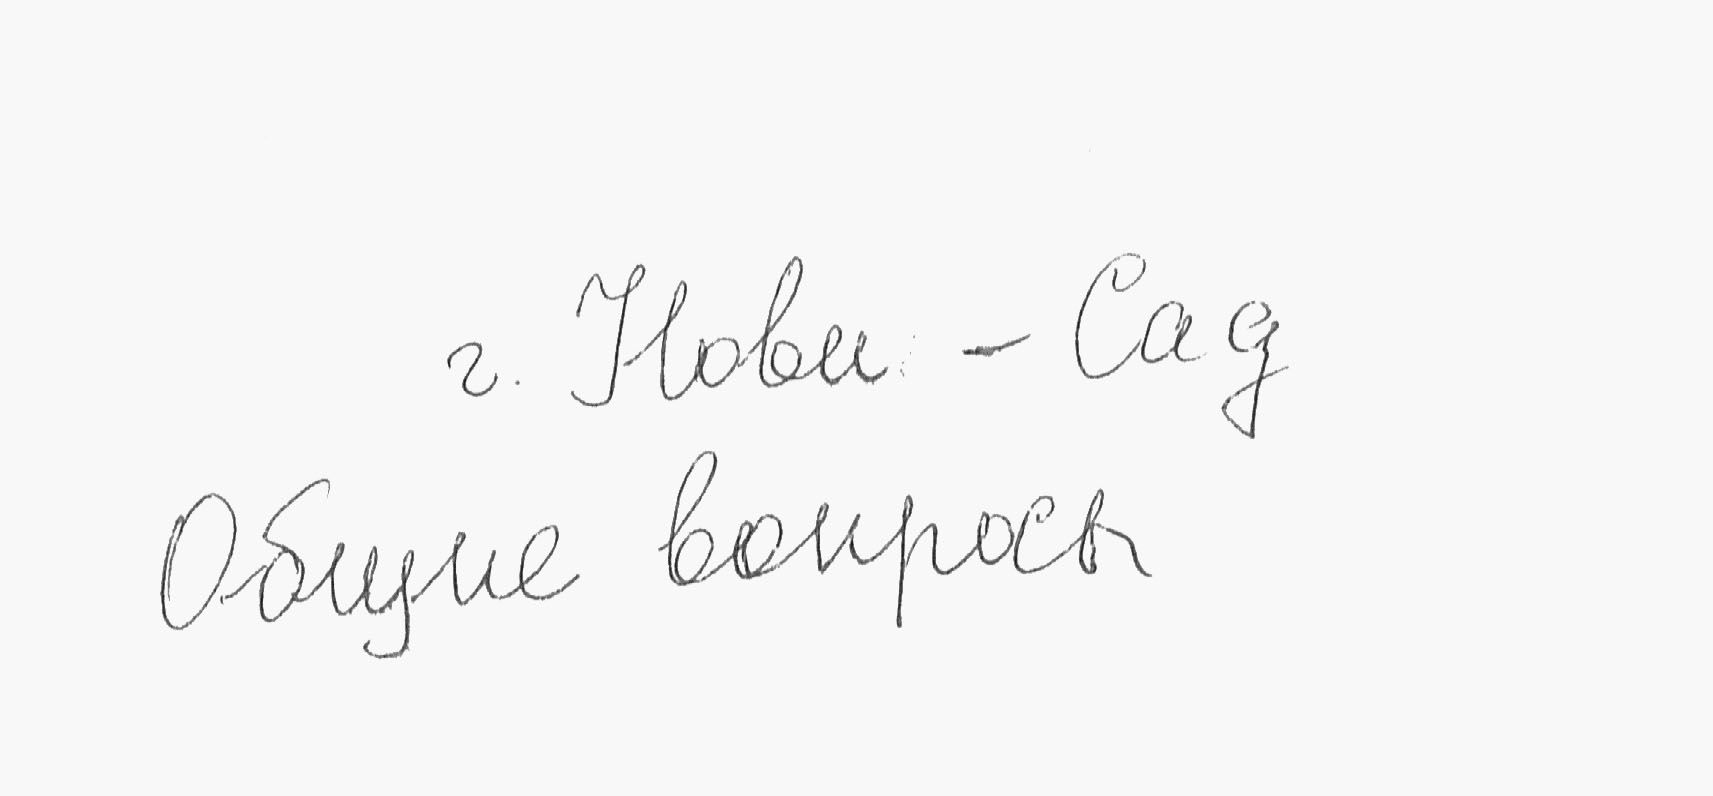 г. Нови - Сад
Общие вопросы